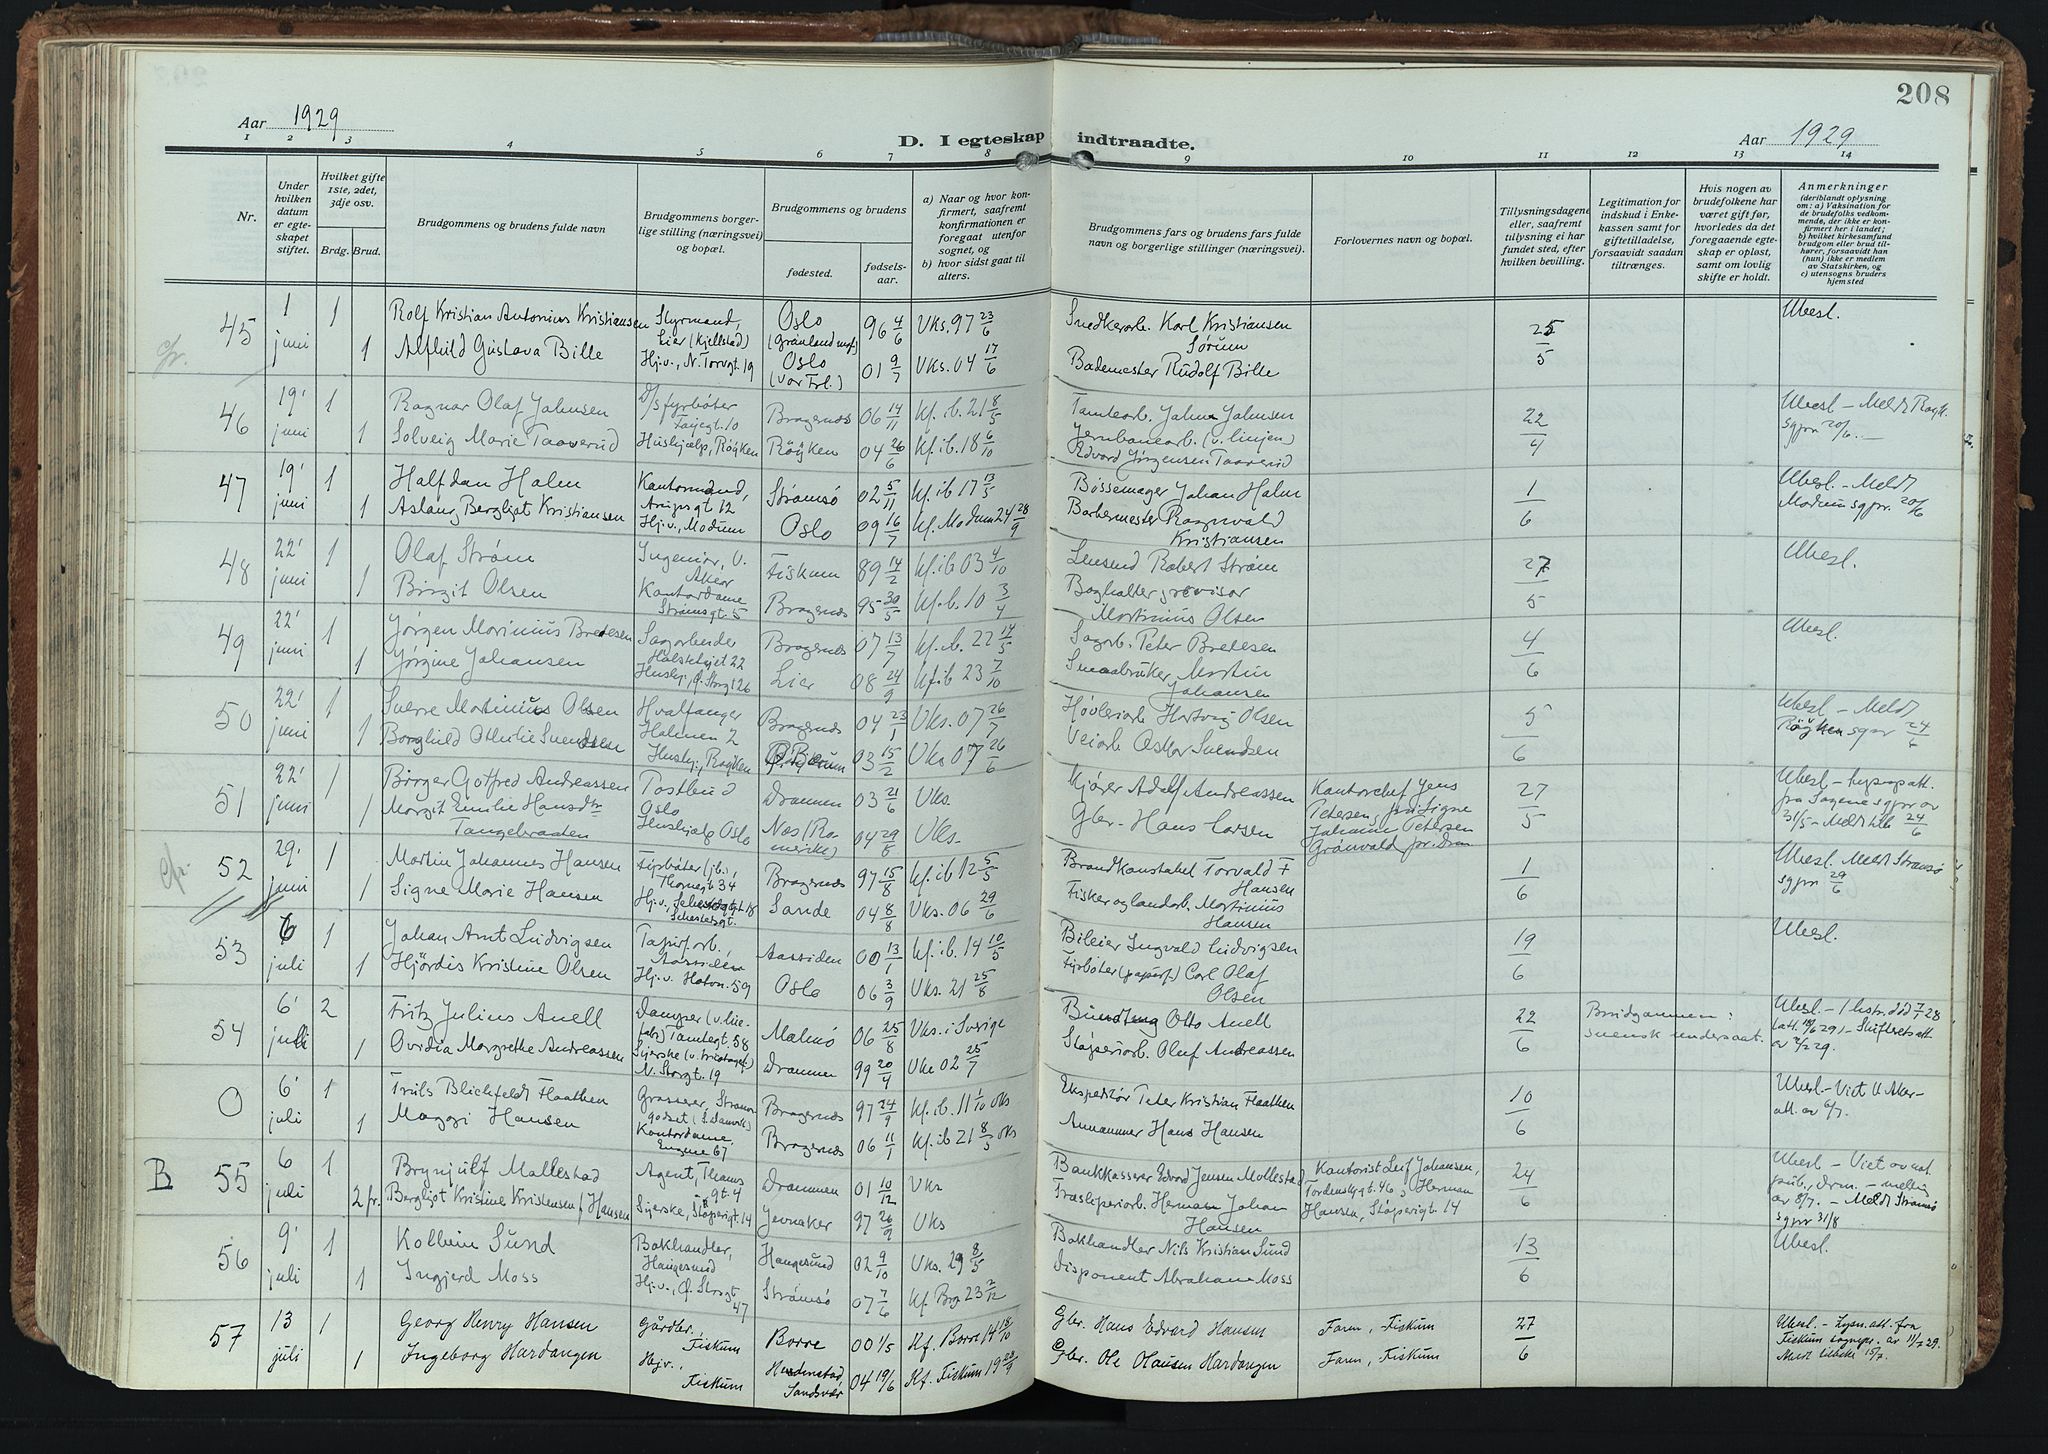 208
Aar 1929
D. I egteskap indtraadte.
Aar 1929
1 2 3 4 5 6 7 8 9 10 11 12 13 14
Nr.
Under hvilken datum er egteskapet stiftet.
Hvilket gifte 1ste, 2det, 3dje osv.
Brdg. Brud.
Brudgommens og brudens fulde navn
Brudgommens borgerlige stilling (næringsvei) og bopæl.
Brudgommens og brudens
fødested.
fødselsaar.
a) Naar og hvor konfirmert, saafremt konfirmationen er foregaat utenfor sognet, og
b) hvor sidst gaat til alters.
Brudgommens fars og brudens fars fulde navn og borgerlige stillinger (næringsvei).
Forlovernes navn og bopæl.
Tillysningsdagene eller, saafremt tillysning ei har fundet sted, efter hvilken bevilling.
Legitimation for indskud i Enkekassen samt for giftetilladelse, forsaavidt saadan tiltrænges.
Hvis nogen av brudefolkene har været gift før, hvorledes da det foregaaende egteskap er opløst, samt om lovlig skifte er holdt.
Anmerkninger
(deriblandt oplysning om: a) Vaksination for de brudefolks vedkommende, der ikke er konfirmert her i landet; b) hvilket kirkesamfund brudgom eller brud tilhører, forsaavidt han (hun) ikke er medlem av Statskirken, og c) utensogns bruders hjemsted
45 1 juni 1 Rolf Kristian Antonius Kristiansen Styrmand, Lier (Kjellstad) Oslo (Grønland m) 96 4/6 Vks. 97 23/6 Snedkerarb. Karl Kristiansen Sørum 25/5 Ubesl.
1 Alfhild Gustava Bille Hj.v., N. Torvgt. 19 Oslo (Vor Frl.) 01 9/7 Vks. 04 17/6 Bademester Rudolf Bille
46 19' juni 1 Ragnar Olaf Johnsen D/s fyrbøter 10 Bragernes 06 14/11 Kf. ib. 21 8/5 Tomtearb. John Johnsen 22/4 Ubesl – Meldt Røyk. sgpr 20/6. –
1 Solveig Marie Taaverud Hushjælp, Røyken Röyken 04 26/6 Kf. ib. 18 6/10 Jernbanearb. (v. linjen) Edvard Jørgensen Taaverud
47 19' juni 1 Halfdan Holm Kontormand, 12 Strømsö 02 5/11 Kf. ib 17 13/5 Bøssemager Johan Holm 1/6 Ubesl. – Meldt Modum sgpr. 20/6
1 Aslaug Bergljot Kristiansen Hj.v., Modum Oslo 09 16/7 Kf. Modum 24 28/9 Barbermester Ragnvald Kristiansen
48 22' juni 1 Olaf Strøm Ingeniør, V. Aker Fiskum 89 14/2 Kf. ib 03 4/10 Lensmd Robert Strøm 27/5 Ubesl.
1 Birgit Olsen Kontordame Strømsgt. 5 Bragernes 95 30/5 Kf. ib. 10 3/4 Boghalter, revisor Martinius Olsen
49 22' juni 1 Jørgen Marinius Bredesen Sagarbeider 22 Bragernes 07 13/7 Kf. ib. 22 14/5 Sagarb. Peter Bredesen 4/6 Ubesl.
1 Jørgine Johansen Hushj., Ø. Storg 126 Lier 08 24/9 Kf. ib 23 7/10 Smaabruker Martin Johansen
50 22' juni 1 Sverre Martinius Olsen Hvalfanger Holmen 2 Bragernes 04 23/1 Vks. 07 26/7 Høvleriarb Hartvig Olsen 5/6 Ubesl – Meldt Röyken sgpr 24/6
1 Borghild Othilie Svendsen Hushj., Røyken 03 15/2 Vks 07 26/6 Veiarb Oskar Svendsen
51 22' juni 1 Børger Gotfred Andreassen Postbud Oslo Drammen 03 21/6 Vks. Kjører Adolf Andreassen Kontorchef Jens Petersen, Signe Johanne Petersen Grønvold pr. Drm 27/5 Ubesl – Lysn.att. fra Sagene sgpr av 31/5 – Meldt tilb 24/6
1 Margit Emilie Hansdtr Tangebraaten Hushjælp Oslo Næs (Romerike) 04 29/8 Vks. Gbr. Hans Larsen
52 29' juni 1 Martin Johannes Hansen Fyrbøter (jb.), Thornegt. 34 Bragernes 97 15/8 Kf. ib 12 5/5 Brandkonstabel Torvald F Hansen 1/6 Ubesl. Meldt Strømsö sgpr 29/6
1 Signe Marie Hansen Hj.v., Schestedsgt. Sande 04 8/8 Vks. 06 29/6 Fisker og landarb. Martinius Hansen
53 6 juli 1 Johan Arnt Ludvigsen Papirf.arb. Aassiden Aassiden 00 13/1 Kf. ib. 14 10/5 Bileier Ingvald Ludvigsen 19/6 Ubesl.
1 Hjördis Kristine Olsen Hj.v. 59 Oslo 06 3/9 Vks. 21 25/8 Fyrbøter (papirf.) Carl Olaf Olsen
54 6' juli 2 Fritz Julius Anell Damper Tomtegt. 58 Malmö 06 25/8 Vks. i Sverige Otto Anell 22/6 Brudgommen: svensk undersaat. Ubesl. – 1 hustr. död 28 – Skifteretsatt. av 29.
1 Ovidia Margrethe Andreassen Syerske N. Storgt. 19 Drammen 99 20/4 Vks 02 25/7 Støperiarb. Oluf Andreassen
O 6' juli 1 Truls Blichfeldt Flaathen Grosserer, Bragernes 97 24/9 Kf. ib. 11 1/10 Oks Ekspeditør Peter Kristian Flaathen 10/6 Ubesl – Viet V Aker – att. av 6/7.
1 Maggi Hansen Kontordame, Engene 67 Bragernes 06 11/1 Kf. ib 21 8/5 Oks Hans Hansen
B 55 6 juli 1 Brynjulf Mollestad Agent, Thams gt. 4 Drammen 01 10/12 Vks Bankkasserer Edvard Jensen Mollestad Kontorist Leif Johansen, Tordenskgt. 46, Herman Hansen, Støperigt. 14 24/6 Ubesl – Viet av not. pub., Drm. – melding av 8/7. – Meldt Strømsö sgpr 31/8
2 fr. Bergljot Kristine Kristensen f. Hansen Syerske, Støperigt. 14 Jevnaker 97 26/9 Vks Træsliperiarb. Herman Johan Hansen
56 9' juli 1 Kolbein Sund Bokhandler, Haugesund Haugesund 02 9/10 Vks. 29 8/5 Bokhandler Nils Kristian Sund 13/6 Ubesl.
1 Ingjerd Moss Hj.v., Ø. Storgt 47 Strømsö 07 7/6 Kf. Brg. 23 2/12 Disponent Abraham Moss
57 13 juli 1 Georg Henry Hansen Gårdbr. Fiskum Borre 00 1/5 Kf. Borre 14 18/10 Gbr. Hans Edvard Hansen Faren, Fiskum 27/6 Ubesl. – Lysn.att. fra Fiskum sognepr. av 11/7 29. Meldt tilbake 15/7.
1 Ingeborg Hardangen Hjv., Fiskum Sandsvær 04 19/6 Kf. Fiskum 19 28/9 Gbr. Ole Olausen Hardangen Faren, Fiskum